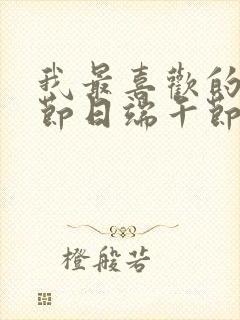 我最喜歡的
節日端午節
橙般若